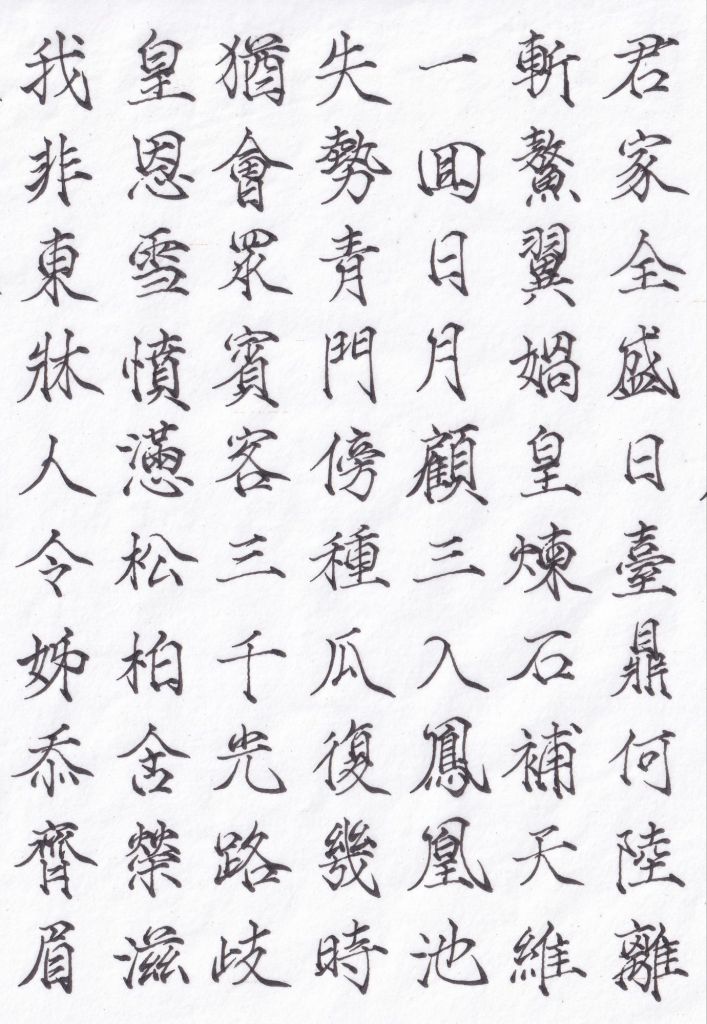 君家全盛日臺鼎何陸離
斬鰲翼媧皇煉石補天維
一囬日月顧三入鳳凰池
失勢青門傍種瓜復幾時
猶會眾賓客三千光路歧
皇恩雪憤懣松柏含榮滋
我非東牀人令姊忝齊眉